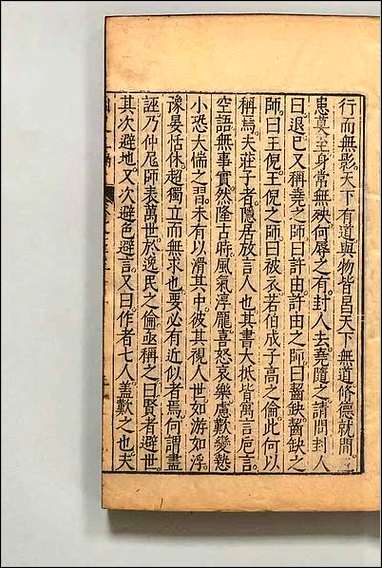 行而無影天下有道與物皆昌天下無道脩德就閒
患莫至身常無殃何辱之有封人去堯隨之請問封人
曰退已又稱堯之師曰許由許由之師曰齧缺齧缺之
師曰王倪王倪之師曰被衣若伯成子高之倫此何以
稱焉夫莊子者隱居放言人也其書大抵皆寓言巵言
空語無事實然隆古時風氣淳龐喜怒哀樂慮歎變慹
小恐大惴之習未有以滑其中彼其視人世如游如浮
豫晏恬休超獨立而無求也要必有近似者焉何謂盡
誣乃仲尼師表萬世於逸民之倫亟稱之曰賢者避世
其次避地又次避色避言又曰作者七人蓋歎之也夫